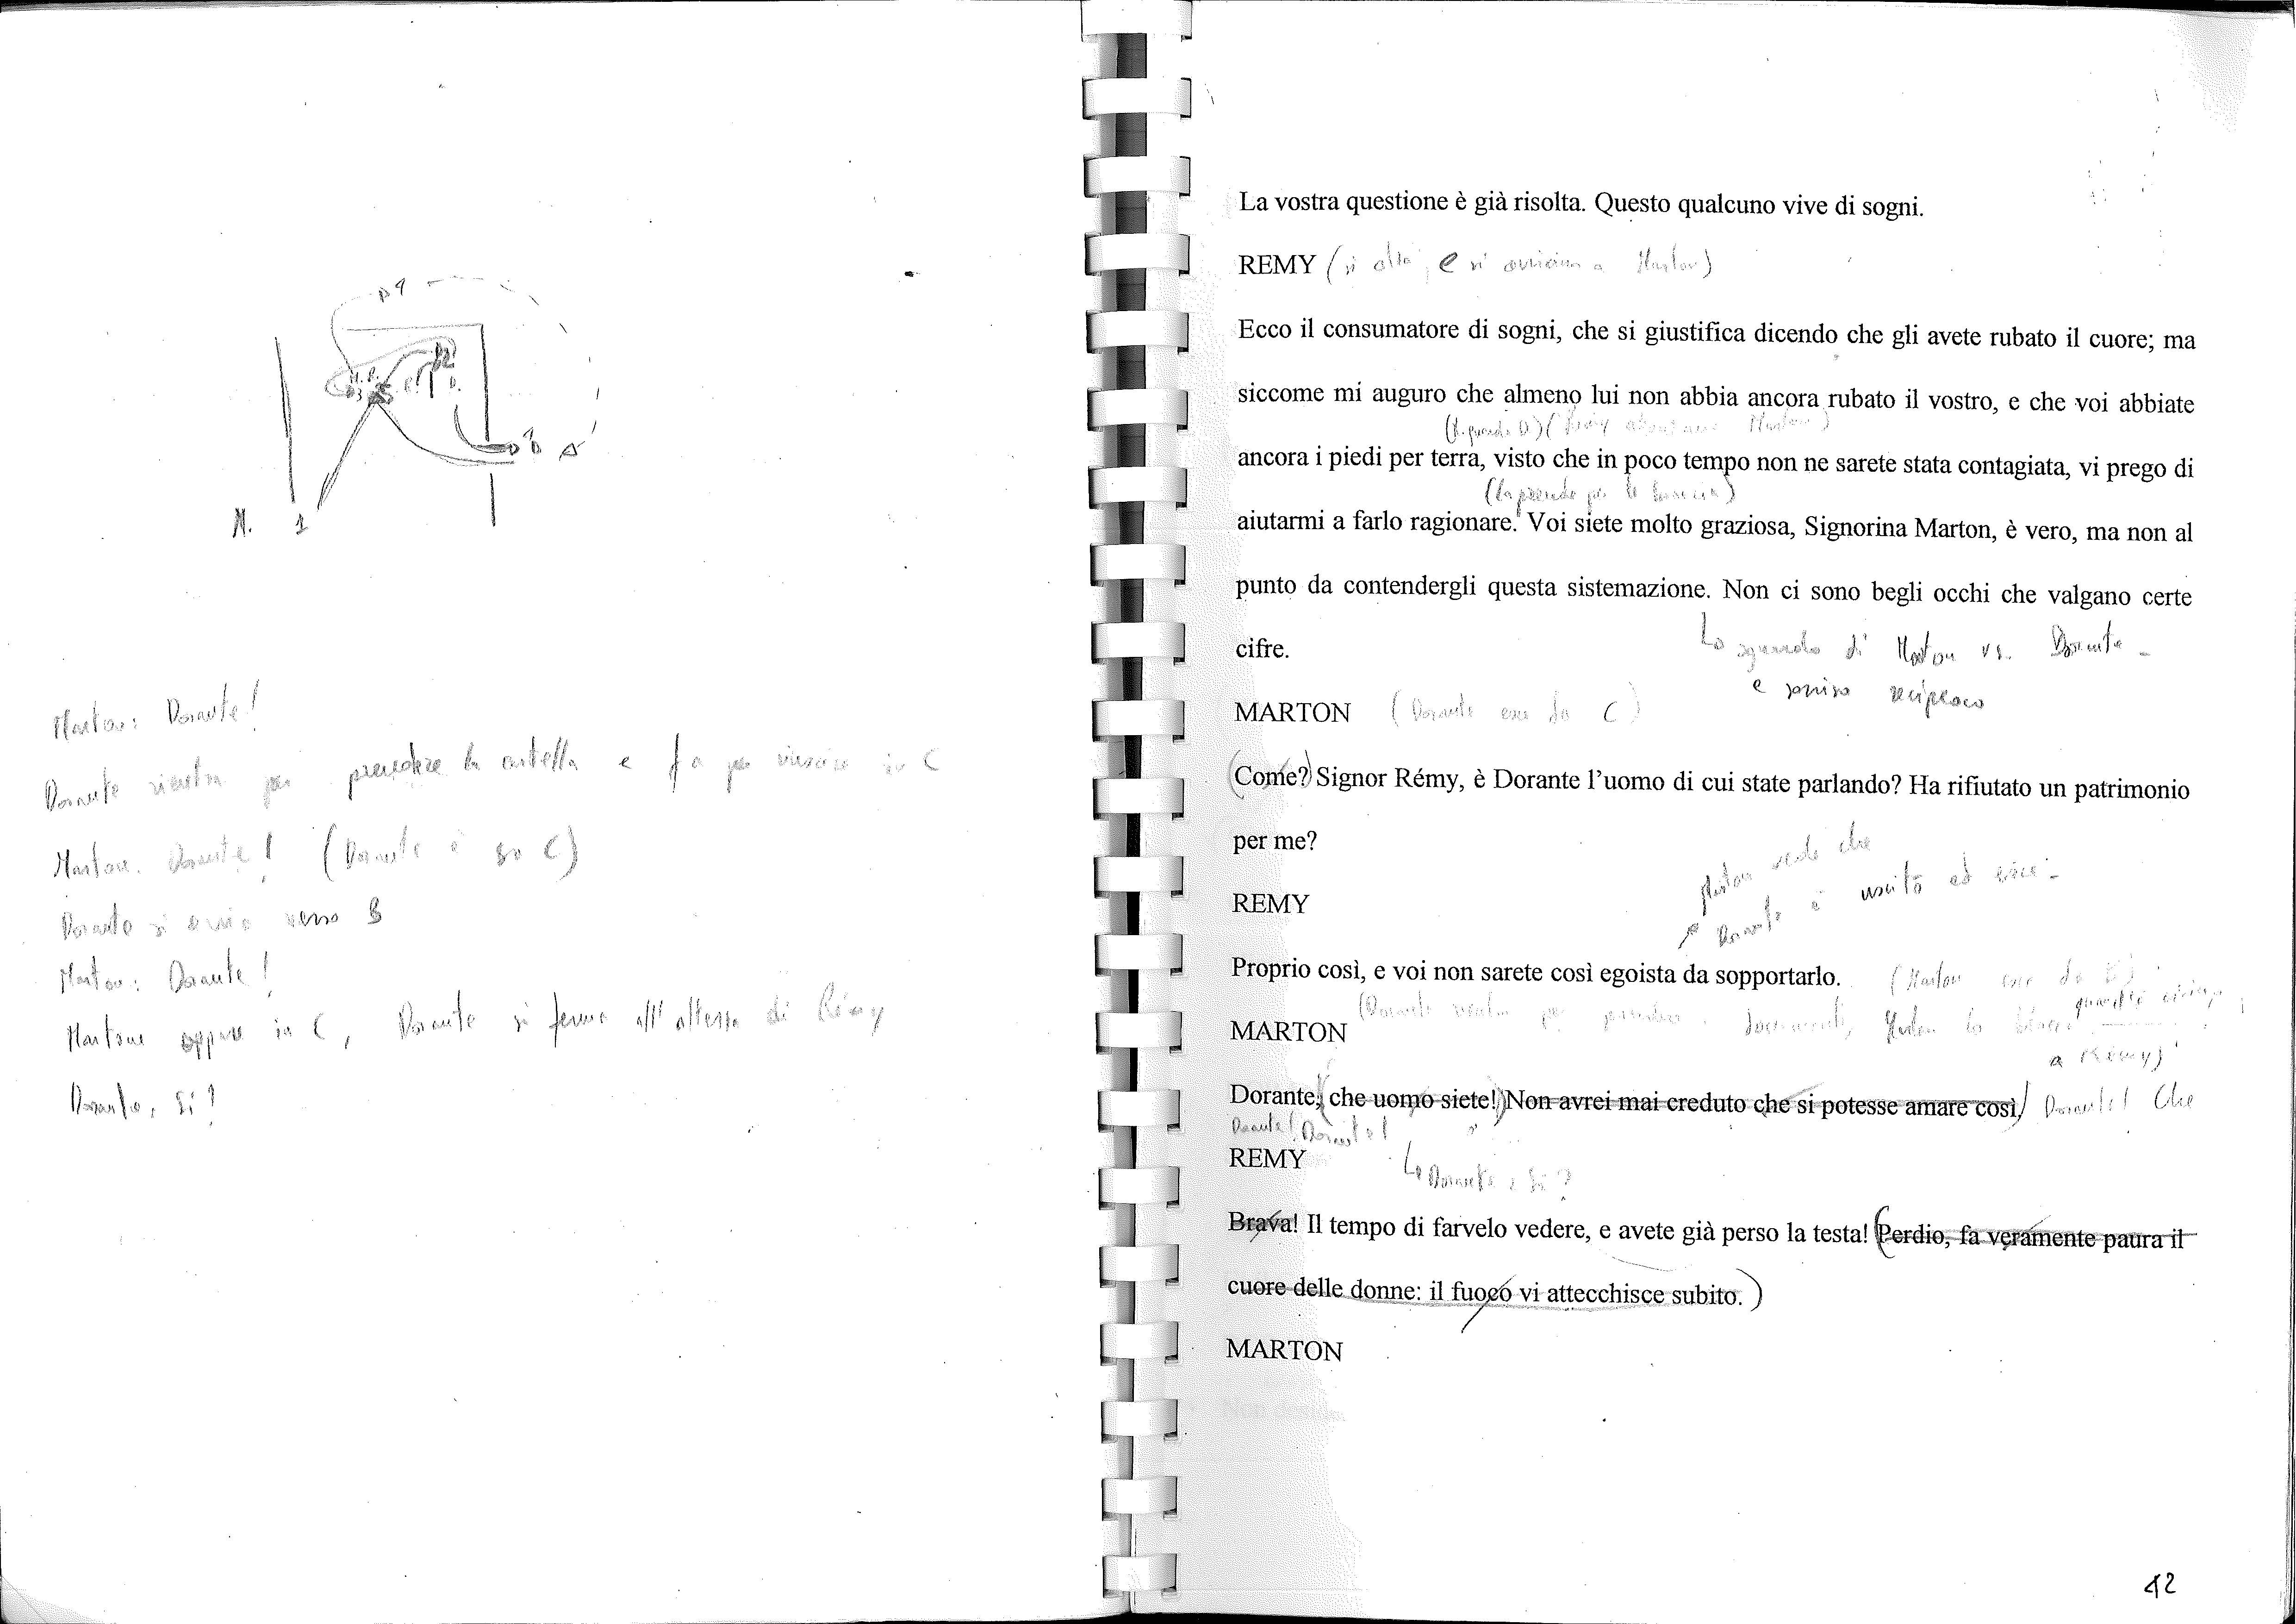 N. 1
Marton: Dorante!
Dorante rientra per prendere la cartella e fa per uscire in C
Marton. Dorante! (Dorante è in C)
Dorante si avvia verso B
Marton: Dorante!
Martone appare in C, Dorante si ferma all'altezza di Rémy
Dorante, Sì?
La vostra questione è già risolta. Questo qualcuno vive di sogni.
REMY (si alza, e si avvicina a Marton)
Ecco il consumatore di sogni, che si giustifica dicendo che gli avete rubato il cuore; ma
siccome mi auguro che almeno lui non abbia ancora rubato il vostro, e che voi abbiate
(Remy Marton)
ancora i piedi per terra, visto che in poco tempo non ne sarete stata contagiata, vi prego di
(la prende per le braccia)
aiutarmi a farlo ragionare. Voi siete molto graziosa, Signorina Marton, è vero, ma non al
punto da contendergli questa sistemazione. Non ci sono begli occhi che valgano certe
cifre.
sguardo di Marton vs. Dorante -
e sorriso reciproco
MARTON (Dorante esce da C)
(Come?) Signor Rémy, è Dorante l'uomo di cui state parlando? Ha rifiutato un patrimonio
per me?
Marton vede che
Dorante è uscito ed esce -
REMY
Proprio così, e voi non sarete così egoista da sopportarlo. (Marton esce da
(Dorante rientra per prendere i documenti, Marton lo blocca
MARTON
a Rémy)
Dorante, (che uomo siete!) Non avrei mai creduto che si potesse amare così/ Dorante! Che
Dorante! Dorante!
REMY
Dorante: Sì?
Brava! Il tempo di farvelo vedere, e avete già perso la testa! (Perdio, fa veramente paura il
cuore delle donne: il fuoco vi attecchisce subito.)
MARTON
42